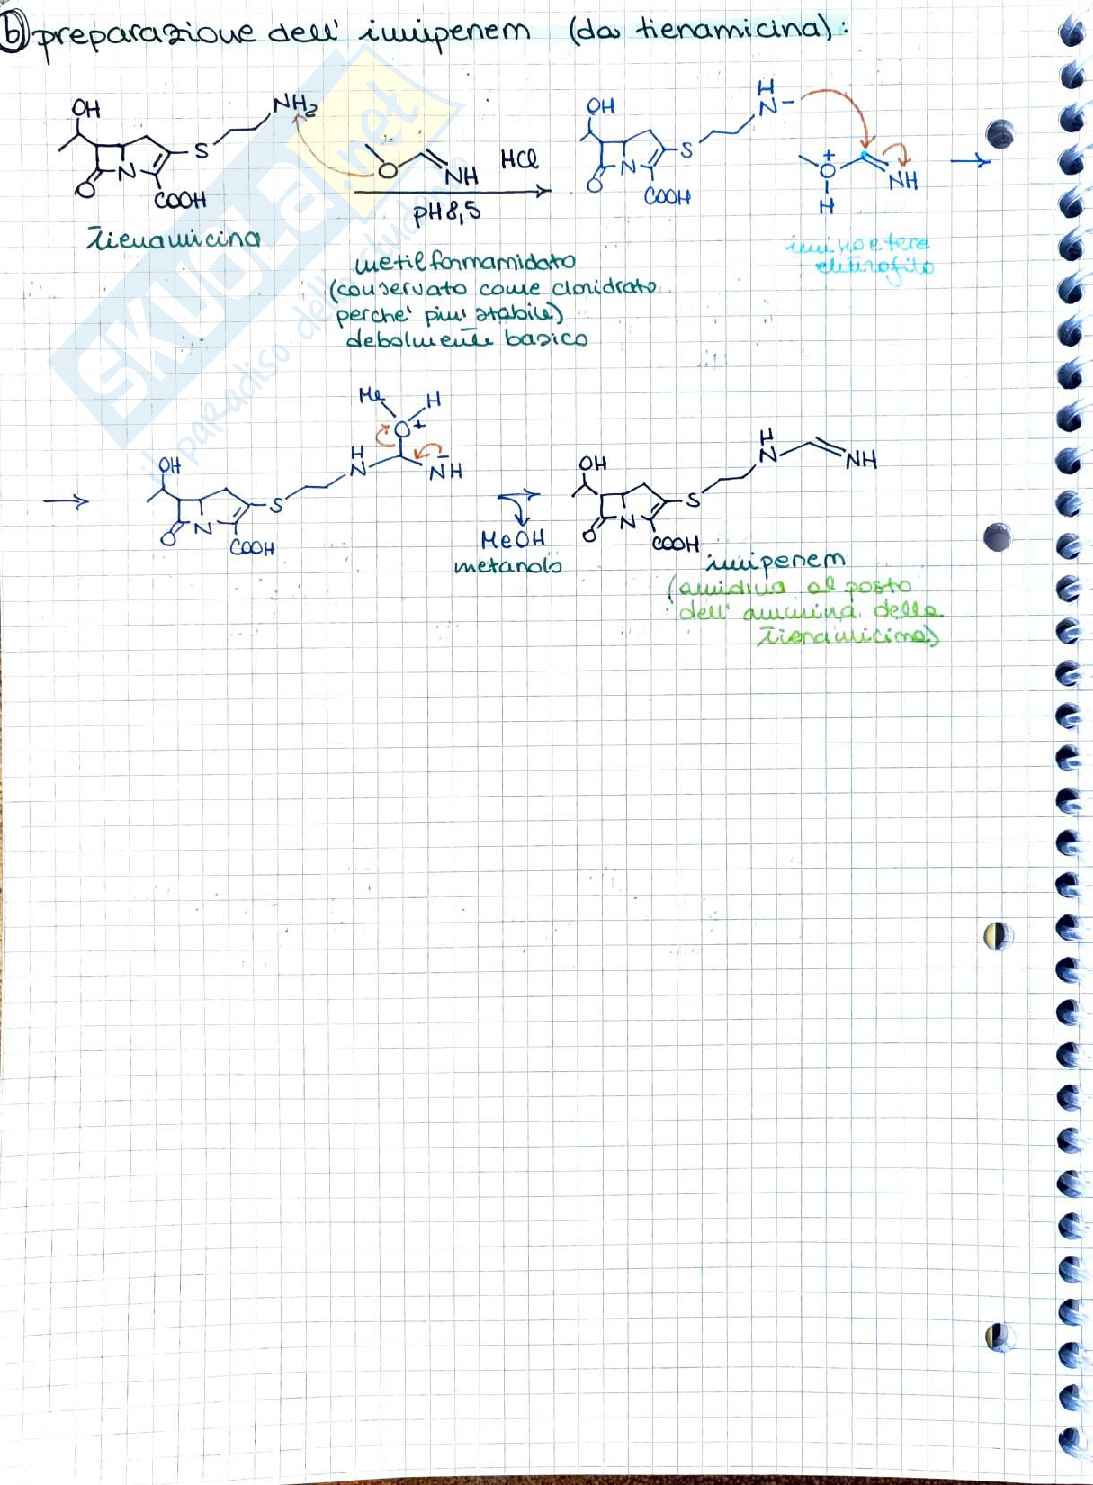 b) preparazione dell' imipenem (da tienamicina):
OH
NH2
S
N
O
COOH
tienamicina
O
NH
HCl
pH 8,5
metilformamidato
(conservato come cloridrato
perche' piu' stabile)
debolmente basico
OH
H
N-
S
N
O
COOH
+
O
H
NH
iminoetere
elettrofilo
Me
H
O+
H
N
-
NH
OH
S
N
O
COOH
MeOH
metanolo
OH
H
N
NH
S
N
O
COOH
imipenem
(amidina al posto
dell' ammina della
tienamicina)
SKUOLA.net
il paradiso dello studente